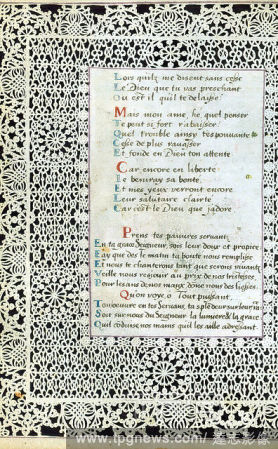 Lors quilz me disent sans cesse
Le Dieu que tu vas preschant
Ou est il qui te delaisse
Mais mon ame, he quel penser
Te peut si fort rabaisser
Quel trouble ainsy tespouvante
Cesse de plus
Et fonde en Dieu ton attente
Car encore en liberté
Je beniray sa bonté
Et mes yeux verront encore
Leur salutaire clarté
Car cest le Dieu que jadore
Prens tes pauvres servans
En ta grace Seigneur, sois leur doux et propice
Fay que des le matin ta bonté nous remplisse
Et nous te chanterons tant que serons vivans
Vueille nous resjouir au prix de noz tristesses
Pour les ans de nos maux donne nous des liesses
Quon voye o Tout puissant
Toute oeuvre en tes Servans, ta splendeur sur leur
Soit sur nous du Seigneur la lumiere & la grace
Quil conduise nos mains quil les aille adressant
www.tpgnews.com/ 達志影像